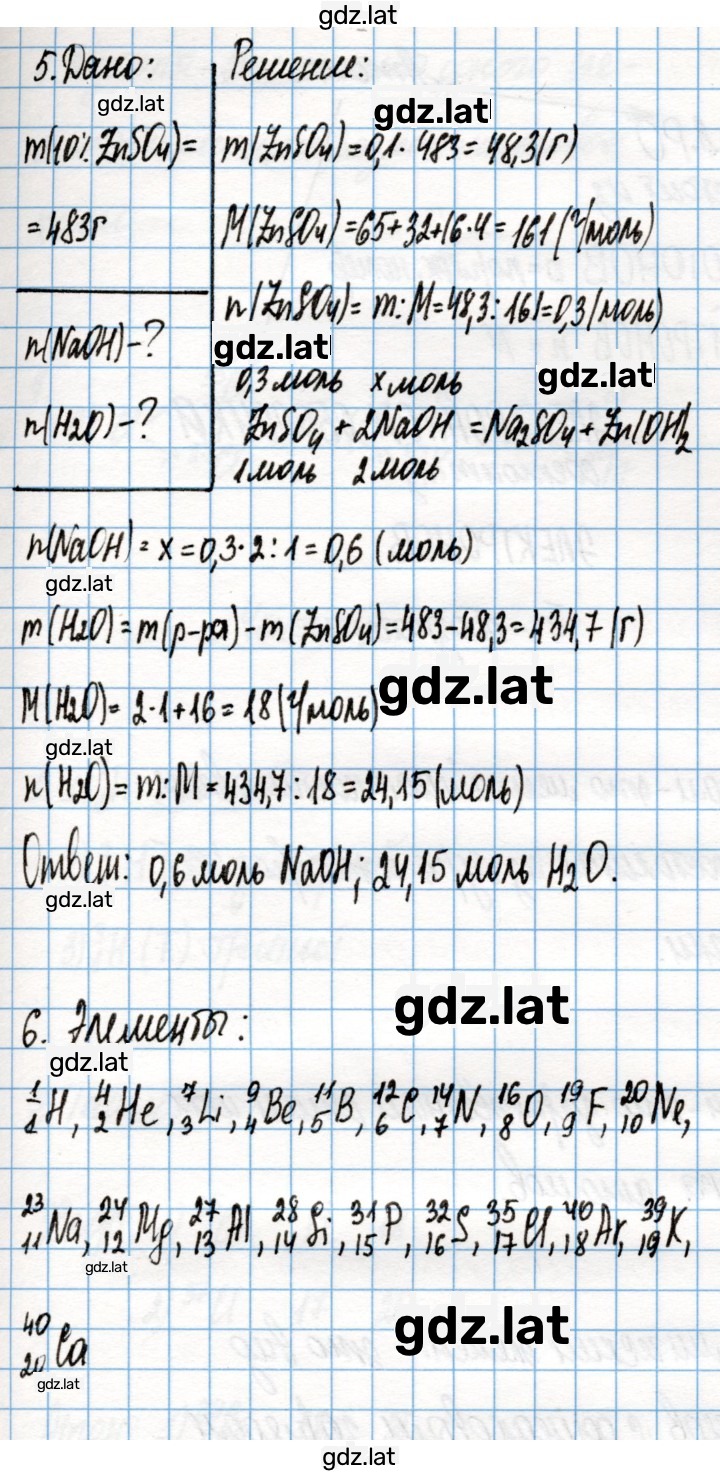 gdz.lat
5. Дано: Решение:
gdz.lat
gdz.lat
m(10% ZnSO₄)= m(ZnSO₄)=0,1·483=48,3(г)
=483г M(ZnSO₄)=65+32+16·4=161(г/моль)
n(ZnSO₄)=m:M=48,3:161=0,3(моль)
n(NaOH)-?
gdz.lat
0,3 моль x моль
gdz.lat
n(H₂O)-? ZnSO₄+2NaOH=Na₂SO₄+Zn(OH)₂
1 моль 2 моль
n(NaOH)=x=0,3·2:1=0,6 (моль)
gdz.lat
m(H₂O)=m(р-ра)-m(ZnSO₄)=483-48,3=434,7(г)
gdz.lat
M(H₂O)=2·1+16=18(г/моль)
gdz.lat
n(H₂O)=m:M=434,7:18=24,15(моль)
Ответ: 0,6 моль NaOH; 24,15 моль H₂O.
gdz.lat
gdz.lat
6. Элементы:
gdz.lat
¹₁H, ⁴₂He, ⁷₃Li, ⁹₄Be, ¹¹₅B, ¹²₆C, ¹⁴₇N, ¹⁶₈O, ¹⁹₉F, ²⁰₁₀Ne,
²³₁₁Na, ²⁴₁₂Mg, ²⁷₁₃Al, ²⁸₁₄Si, ³¹₁₅P, ³²₁₆S, ³⁵₁₇Cl, ⁴⁰₁₈Ar, ³⁹₁₉K,
gdz.lat
⁴⁰₂₀Ca
gdz.lat
gdz.lat
gdz.lat